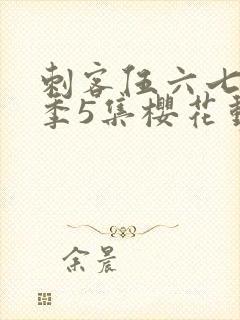 刺客伍六七
季5集樱花
余晨